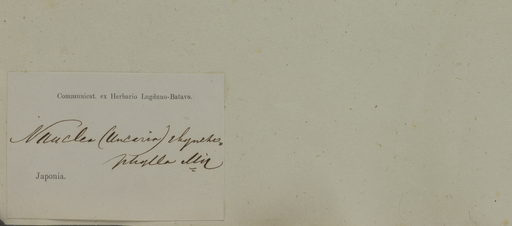 Communicat. ex Herbario Lugduno-Batavo.
Nauclea (Uncaria) rhyncho-
phylla Miq
Japonia.